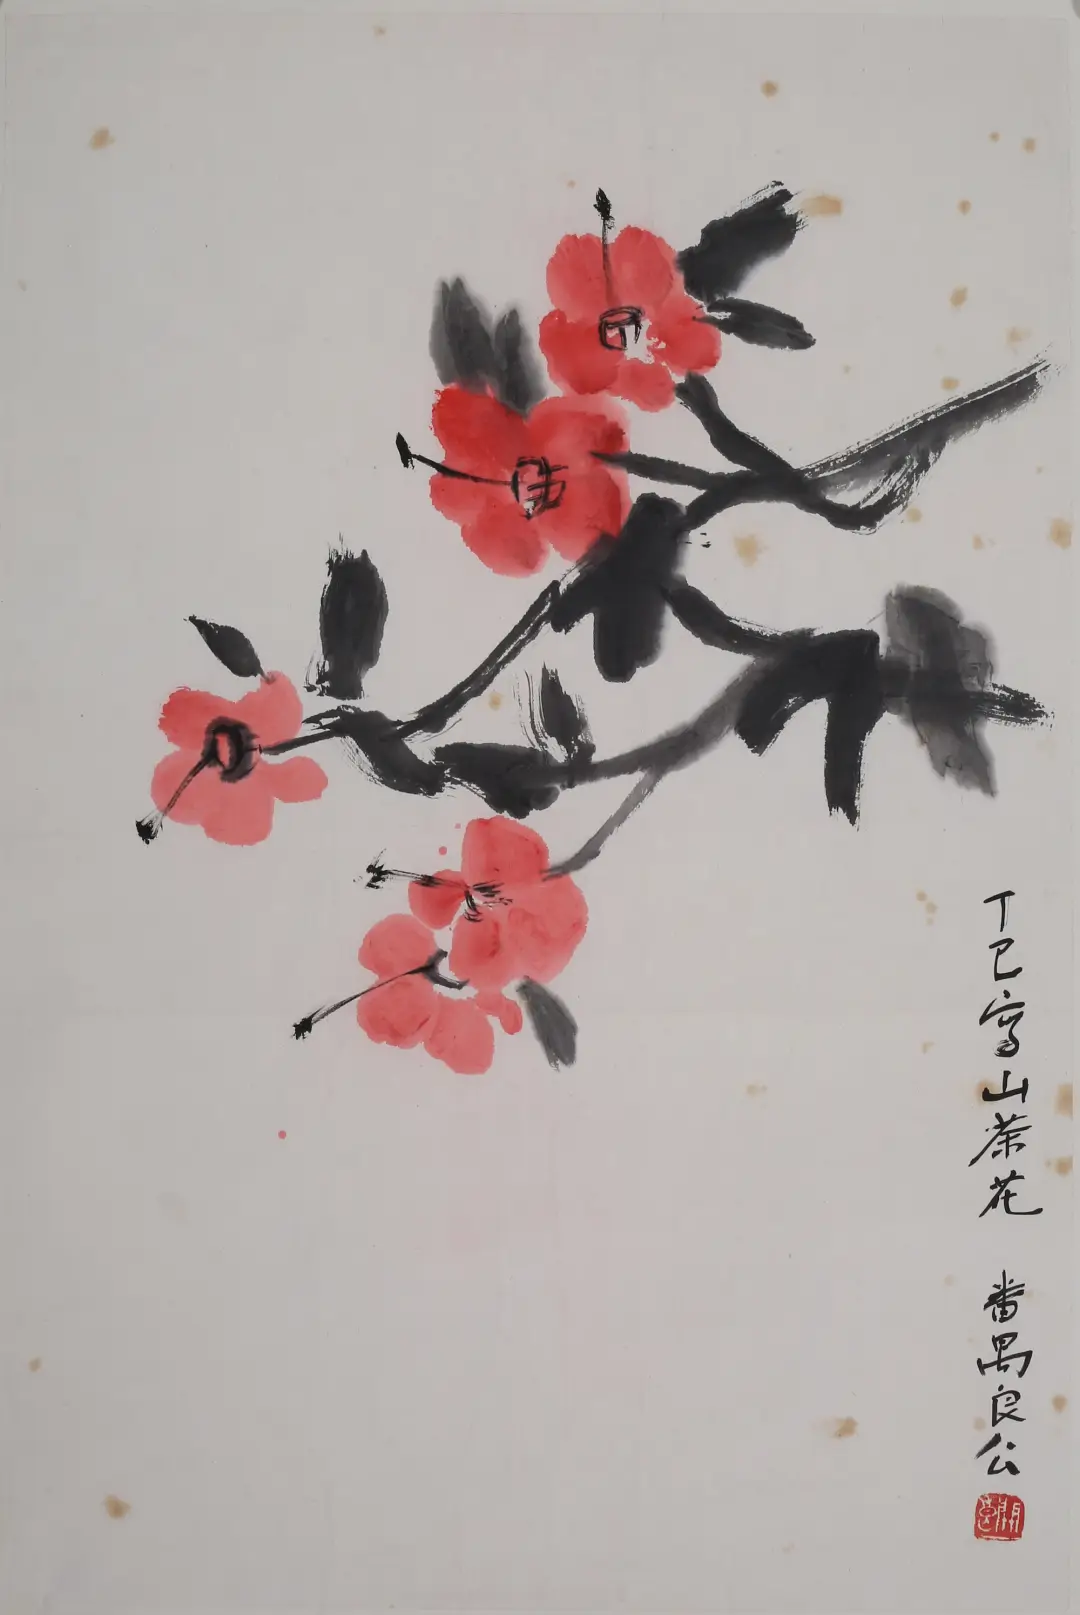 丁巳寫山茶花
番禺良公